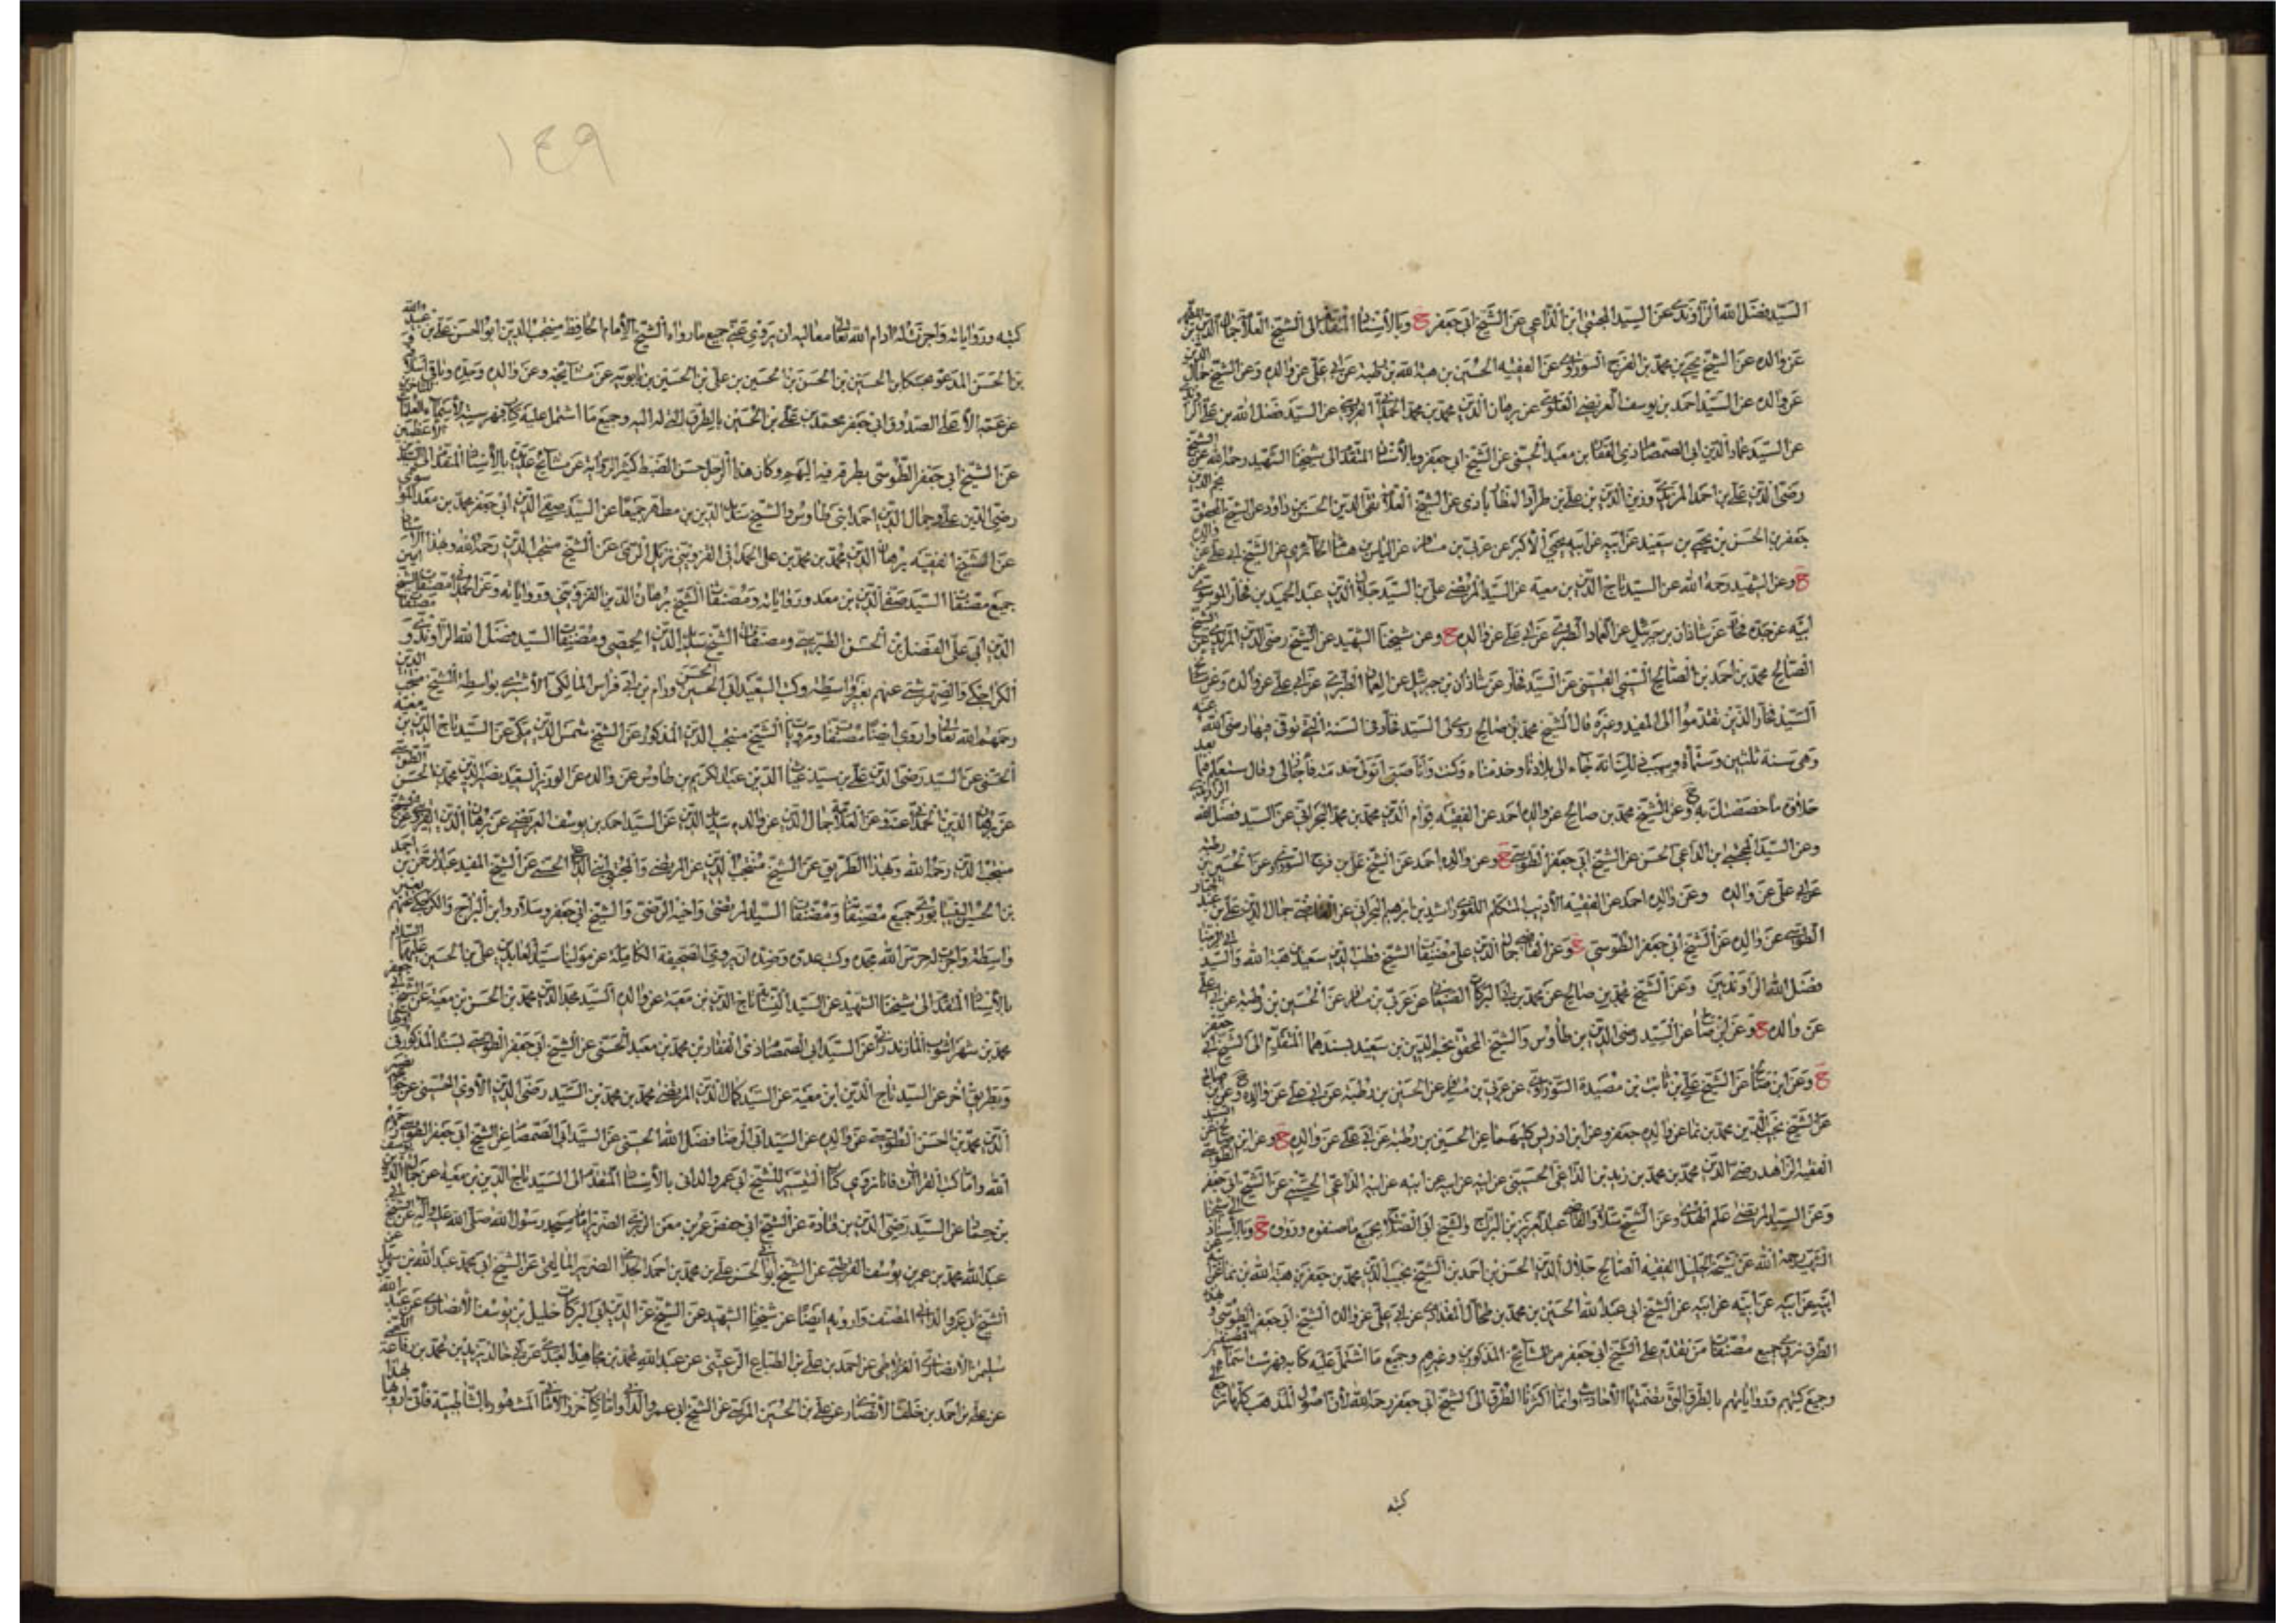 السيد فضل الله الراوندي عن السيد المجتبى ابن الداعي عن الشيخ ابي جعفر ح وبالأسناد المتقدم الى الشيخ العلامة جمال الدين بن المطهر
عن والده عن الشيخ يحيى بن محمد بن الفرج السوراوي عن الفقيه الحسين بن هبة الله بن رطبة عن ابي علي عن والده وعن الشيخ جمال الدين
عن والده عن السيد احمد بن يوسف العريضي العلوي عن برهان الدين محمد بن محمد الحمداني القزويني عن السيد فضل الله بن علي الراوندي
عن السيد عماد الدين ابي الصمصام ذي الفقار بن معبد الحسني عن الشيخ ابي جعفر وبالأسناد المتقدم الى شيخنا الشهيد رحمه الله عن الشيخ
رضي الدين علي بن احمد المزيدي وزين الدين بن علي بن طراد المطارابادي عن الشيخ العلامة تقي الدين الحسن بن داود عن الشيخ المحقق نجم الدين
جعفر بن الحسن بن يحيى بن سعيد عن ابيه عن ابيه يحيى الأكبر عن عربي بن مسافر عن الياس بن هشام الحائري عن الشيخ ابي علي عن والده
ح وعن الشهيد رحمه الله عن السيد تاج الدين بن معية عن السيد المرتضى علي بن السيد جلال الدين عبد الحميد بن فخار الموسوي عن
ابيه عن جده فخار عن شاذان بن جبرئيل عن العماد الطبري عن ابي علي عن والده ح وعن شيخنا الشهيد عن الشيخ رضي الدين المزيدي عن الشيخ
الصالح محمد بن احمد بن الصالح السيبي القسيني عن السيد فخار عن شاذان بن جبرئيل عن العماد الطبري عن ابي علي عن والده وعن مشايخ
السيد فخار الذين تقدموا الى المفيد وغيره قال الشيخ محمد بن صالح روى لي السيد فخار في السنة التي توفي فيها رضي الله عنه
وهي سنة ثلثين وستمأة وسبب ذلك انه جاء الى بلادنا وخدمناه وكنت وانا صبي اتولى خدمته فأجازني وقال ستعلم فيما بعد
حلاوة ما خصصتك به ح وعن الشيخ محمد بن صالح عن والده احمد عن الفقيه قوام الدين محمد بن محمد البحراني عن السيد فضل الله الراوندي
وعن السيد المجتبى ابن الداعي الحسن عن الشيخ ابي جعفر الطوسي ح وعن والده احمد عن الشيخ علي بن فرج السوراوي عن الحسين بن رطبة
عن ابي علي عن والده وعن والده احمد عن الفقيه الأديب المتكلم اللغوي راشد بن ابرهيم البحراني عن القاضي جمال الدين علي بن عبد الجبار
الطوسي عن والده عن الشيخ ابي جعفر الطوسي ح وعن القاضي جمال الدين علي مصنفات الشيخ قطب الدين سعيد بن هبة الله والسيد ابي الرضا
فضل الله الراونديين وعن الشيخ محمد بن صالح عن محمد بن ابي البركات الصنعاني عن عربي بن مسافر عن الحسين بن رطبة عن ابي علي
عن والده ح وعن ابن صالح عن السيد رضي الدين بن طاوس والشيخ المحقق نجم الدين بن سعيد بسندهما المتقدم الى الشيخ ابي جعفر
ح وعن ابن صالح عن الشيخ علي بن ثابت بن عصيدة السوراوي عن عربي بن مسافر عن الحسين بن رطبة عن ابي علي عن والده ح وعن بن صالح
عن الشيخ نجيب الدين محمد بن نما عن والده جعفر وعن ابن ادريس كليهما عن الحسين بن رطبة عن ابي علي عن والده ح وعن ابن صالح عن السيد
الفقيه الزاهد رضي الدين محمد بن محمد بن زيد بن الداعي الحسيني عن ابيه عن ابيه عن ابيه عن ابيه الداعي الحسيني عن الشيخ ابي جعفر الطوسي
وعن السيد المرتضى علم الهدى وعن الشيخ سلار والقاضي عبد العزيز بن البراج والشيخ ابي الصلاح بجميع ما صنفوه ورووه ح وبالأسناد الى شيخنا
الشهيد رحمه الله عن شيخه الجليل الفقيه الصالح جلال الدين الحسن بن احمد بن الشيخ نجيب الدين محمد بن جعفر بن هبة الله بن نما عن
ابيه عن ابيه عن ابيه عن ابيه عن الشيخ ابي عبد الله الحسين بن محمد بن طحال المقدادي عن ابي علي عن والده الشيخ ابي جعفر الطوسي وبهذه
الطرق نروي جميع مصنفات من تقدم على الشيخ ابي جعفر من المشايخ المذكورين وغيرهم وجميع ما اشتمل عليه كتابه فهرست اسماء المصنفين
وجميع كتبهم ورواياتهم بالطرق التي تضمنتها الأحاديث وانما اكثرنا الطرق الى الشيخ ابي جعفر رحمه الله لأن اصول المذهب كلها ترجع الى
كتبه
١٤٩
كتبه ورواياته واجزت له ادام الله تعالى معاليه ان يروي عني جميع ما رواه الشيخ الأمام الحافظ منتجب الدين ابو الحسن علي بن عبيد الله
بن الحسن المدعو حسكا بن الحسين بن الحسن بن الحسين بن علي بن الحسين بن بابويه عن مشايخه وعن والده وجده وباقي اسلافه
عن عمه الأعلى الصدوق ابي جعفر محمد بن علي بن الحسين بالطرق التي له اليه وجميع ما اشتمل عليه كتاب فهرسته لأسماء العلماء المتأخرين
عن الشيخ ابي جعفر الطوسي بطرقه فيه اليهم وكان هذا الرجل حسن الضبط كثير الرواية عن مشايخ عديدة بالأسناد المتقدم الى السيدين الأعظمين
رضي الدين علي وجمال الدين احمد ابني طاوس والشيخ سديد الدين بن مطهر جميعا عن السيد صفي الدين ابي جعفر محمد بن معد الموسوي
عن الشيخ الفقيه برهان الدين محمد بن محمد بن علي الحمداني القزويني نزيل الري عن الشيخ منتجب الدين رحمه الله وبهذا الأسناد
جميع مصنفات السيد صفي الدين بن معد ورواياته ومصنفات الشيخ برهان الدين القزويني ورواياته وعن الحمداني مصنفات الشيخ امين
الدين ابي علي الفضل بن الحسن الطبرسي ومصنفات الشيخ سديد الدين الحمصي ومصنفات السيد فضل الله الراوندي و مصنفات
الكراجكي والصهرشتي عنهم بغير واسطة وكتب السعيد ابي الحسين ورام بن ابي فراس المالكي الأشتري بواسطة الشيخ منتجب الدين
رحمهما الله تعالى واروي ايضا مصنفات ومرويات الشيخ منتجب الدين المذكور عن الشيخ شمس الدين مكي عن السيد تاج الدين بن معية
الحسني عن السيد رضي الدين علي بن سيد غياث الدين عبد الكريم بن طاوس عن والده عن الوزير السعيد نصير الدين محمد بن الحسن الطوسي
عن برهان الدين الحمداني عنه وعن العلامة جمال الدين عن والده سديد الدين عن السيد احمد بن يوسف العريضي عن برهان الدين القزويني عن الشيخ
منتجب الدين رحمه الله وبهذا الطريق عن الشيخ منتجب الدين عن المرتضى والمجتبى ابني الداعي الحسني عن الشيخ المفيد عبد الرحمن بن احمد
بن الحسين النيسابوري جميع مصنفاته ومصنفات السيد المرتضى واخيه الرضي والشيخ ابي جعفر وسلار وابن البراج والكراجكي عنهم بغير
واسطة واجزت له حرس الله مجده وكبت عدوه وضده ان يروي الصحيفة الكاملة عن مولينا سيد العابدين علي بن الحسين عليهما السلام
بالأسناد المتقدم الى شيخنا الشهيد عن السيد النسابة تاج الدين بن معية عن والده السيد مجد الدين محمد بن الحسن بن معية عن الشيخ ابي جعفر
محمد بن شهراشوب المازندراني عن السيد ابي الصمصام ذي الفقار بن محمد بن معبد الحسني عن الشيخ ابي جعفر الطوسي بسنده المذكور في اولها
وبطريق اخر عن السيد تاج الدين ابن معية عن السيد كمال الدين المرتضى محمد بن محمد بن السيد رضي الدين الأوي الحسيني عن خواجه نصير
الدين محمد بن الحسن الطوسي عن والده عن السيد ابي الرضا فضل الله الحسني عن السيد ابي الصمصام عن الشيخ ابي جعفر الطوسي رحمهم
الله واما كتب القراءات فانا نروي كتاب التيسير للشيخ ابي عمرو الداني بالأسناد المتقدم الى السيد تاج الدين بن معية عن جمال الدين يوسف
بن حماد عن السيد رضي الدين بن قتادة عن الشيخ ابي حفص عمر بن معن الزبري الضرير امام مسجد رسول الله صلى الله عليه وآله عن الشيخ ابي
عبد الله محمد بن عمر بن يوسف القرطبي عن الشيخ ابي الحسن علي بن محمد بن احمد الجذامي الضرير المالقي عن الشيخ ابي محمد عبد الله بن سهل عن
الشيخ ابي عمرو الداني المصنف وارويه ايضا عن شيخنا الشهيد عن الشيخ عز الدين ابي البركات خليل بن يوسف الأنصاري عن عبد الله
سليمن الأنصاري الغرناطي عن احمد بن علي بن الطباع الرعيني عن عبد الله محمد بن مجاهد العبدي عن ابي خالد يزيد بن محمد بن رفاعة اللخمي
عن علي بن احمد بن خلف الأنصاري عن علي بن الحسين المرسي عن الشيخ ابي عمرو الداني واما كتاب حرز الأماني المشهور بالشاطبية فأني ارويها بهذا